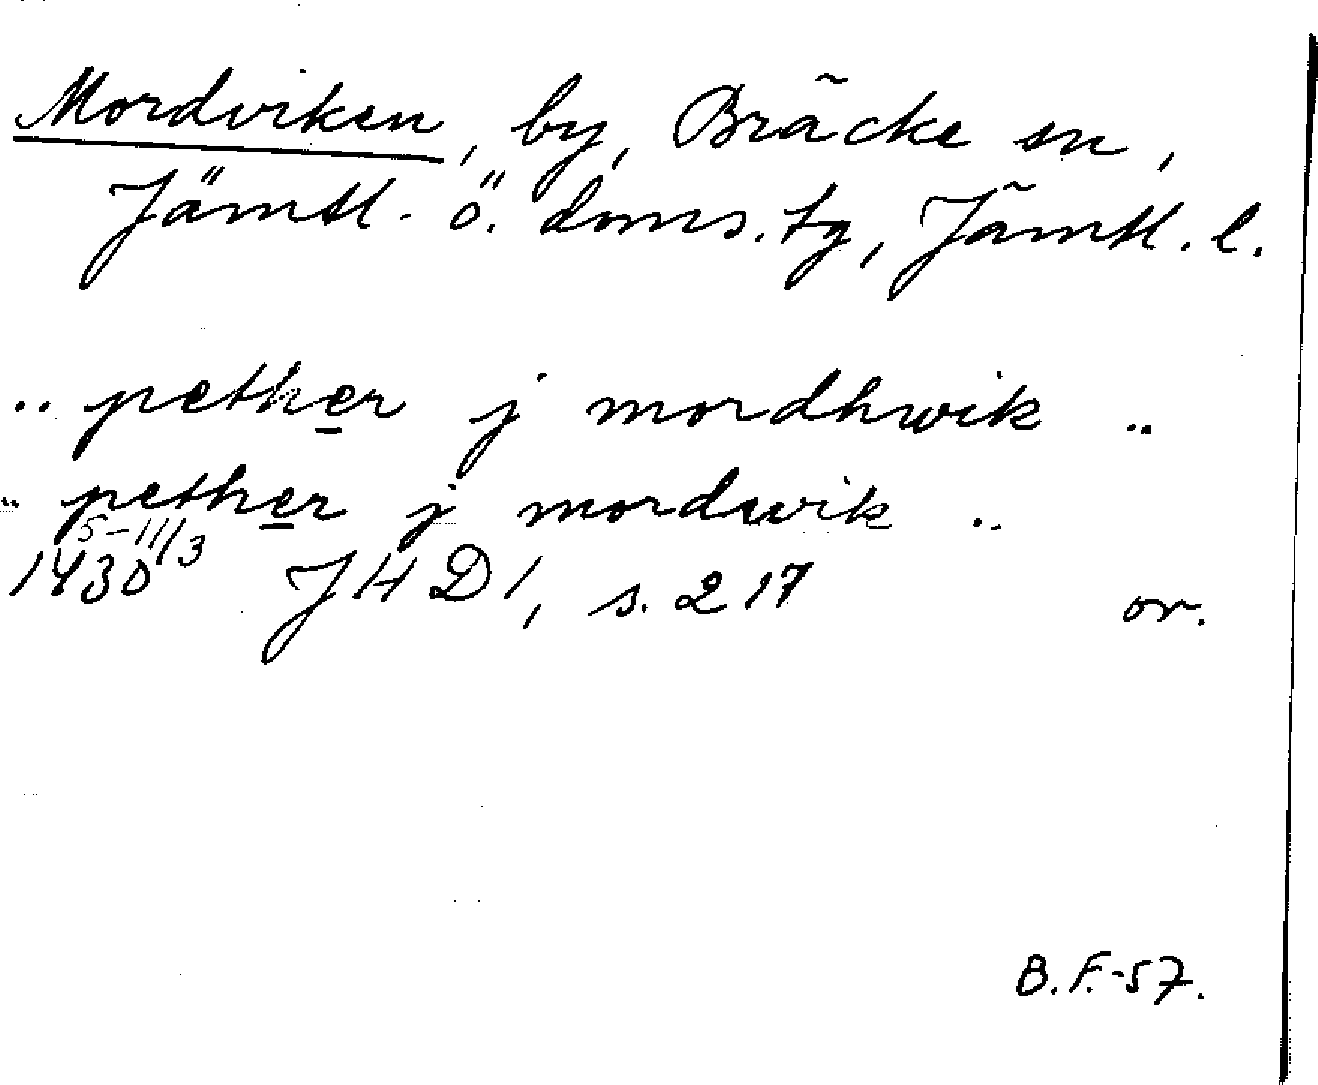 Mordviken, by, Bräcke sn,
Jämtl. ö. doms. tg, Jämtl. l.
.. pether j mordhwik ..
.. pether j mordwik ..
5-11/3
1430 JHD1, s. 217 or.
B.F.-57.